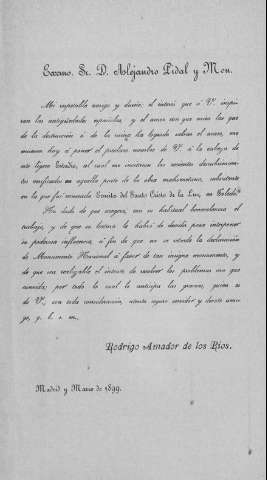 Excmo. Sr. D. Alejandro Pidal y Mon.
Mi respetable amigo y dueño, el interés que á V. inspi-
ran las antigüedades españolas, y el amor con que mira las que
de la destrucción ó de la ruina ha logrado salvar el acaso, me
mueven hoy á poner el preclaro nombre de V. á la cabeza de
este ligero Estudio, al cual me invitaron los recientes descubrimien-
tos verificados en aquella parte de la obra mahometana, subsistente
en la que fué nombrada Ermita del Santo Cristo de la Luz, en Toledo.
No dudo de que acogerá, con su habitual benevolencia el
trabajo, y de que su lectura le habrá de decidir para interponer
su poderosa influencia, á fin de que no se retarde la declaración
de Monumento Nacional á favor de tan insigne monumento, y
de que sea realizable el intento de resolver los problemas con que
convida; por todo lo cual le anticipa las gracias, quien es
de V., con toda consideración, atento seguro servidor y devoto ami-
go, q. b. s. m.,
Rodrigo Amador de los Ríos.
Madrid y Marzo de 1899.